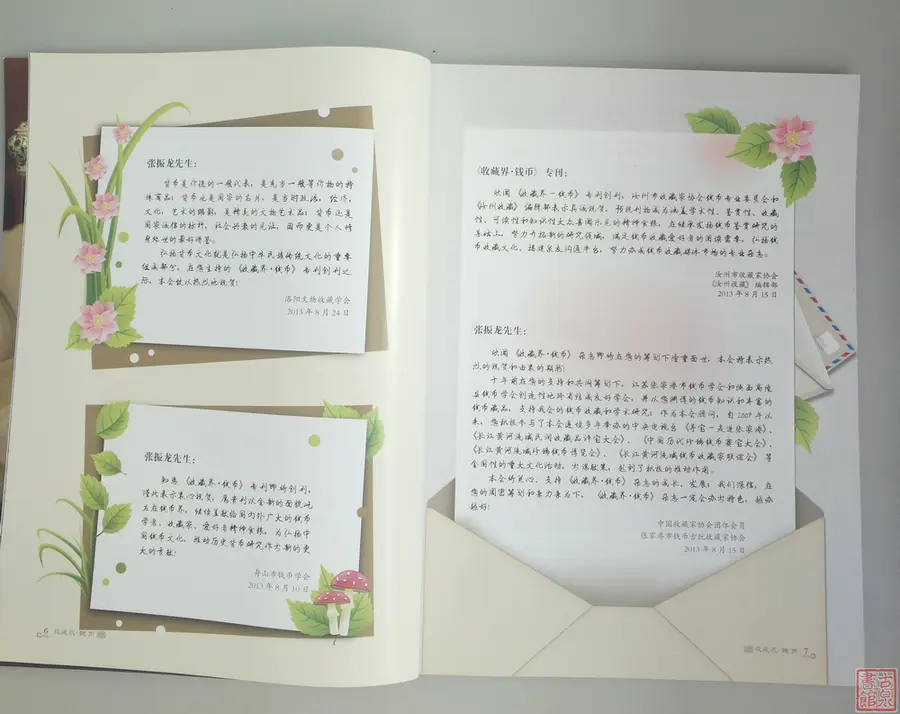 张振龙先生：
货币是价值的一般代表，是充当一般等价物的特
殊商品；货币也是国家的名片，是当时政治、经济、
文化、艺术的缩影，是精美的文物艺术品；货币还是
国家诚信的标杆，社会兴衰的见证，因而更是个人修
身处世的最好导鉴。
弘扬货币文化就是弘扬中华民族传统文化的重要
组成部分，在您主持的《收藏界·钱币》专刊创刊之
际，本会致以热烈地祝贺！
洛阳文物收藏学会
2013年8月24日
张振龙先生：
知悉《收藏界·钱币》专刊即将创刊，
谨代表示衷心祝贺，愿贵刊以全新的面貌屹
立在钱币界，继续奉献给国内外广大的钱币
学者、收藏家、爱好者精神食粮，为弘扬中
国钱币文化，推动历史货币研究作出新的更
大的贡献！
舟山市钱币学会
2013年8月10日
6 收藏界·钱币
《收藏界·钱币》专刊：
欣闻《收藏界—钱币》专刊创刊，汝州市收藏家协会钱币专业委员会和
《汝州收藏》编辑部表示真诚祝贺。预祝刊物成为涵盖学术性、鉴赏性、收藏
性、可读性和知识性大众喜闻乐见的精神食粮，在继承发扬钱币鉴赏研究的
基础上，努力开拓新的研究领域，满足钱币收藏爱好者的阅读需要，弘扬钱
币收藏文化，搭建泉友沟通平台，努力办成钱币收藏媒体市场的专业杂志。
汝州市收藏家协会
《汝州收藏》编辑部
2013年8月15日
张振龙先生：
欣闻《收藏界·钱币》杂志即将在您的筹划下隆重面世，本会特表示热
烈的祝贺和由衷的期盼！
十年前在您的支持和共同筹划下，江苏张家港市钱币学会和陕西高陵
县钱币学会创造性地跨省结成友好学会，并以您渊博的钱币知识和丰富的
钱币藏品，支持我会的钱币收藏和学术研究；作为本会顾问，自2009年以
来，您积极参与了本会连续多年举办的中央电视台《寻宝—走进张家港》、
《长江黄河流域民间收藏品评宝大会》、《中国历代珍稀钱币赛宝大会》、
《长江黄河流域珍稀钱币博览会》、《长江黄河流域钱币收藏家联谊会》等
全国性的重大文化活动，出谋献策，起到了积极的推动作用。
本会将关心、支持《收藏界·钱币》杂志的成长、发展；我们深信，在
您的周密筹划和亲力亲为下，《收藏界·钱币》杂志一定会办出特色，越办
越好！
中国收藏家协会团体会员
张家港市钱币古玩收藏家协会
2013年8月15日
收藏界·钱币 7
古泉書館